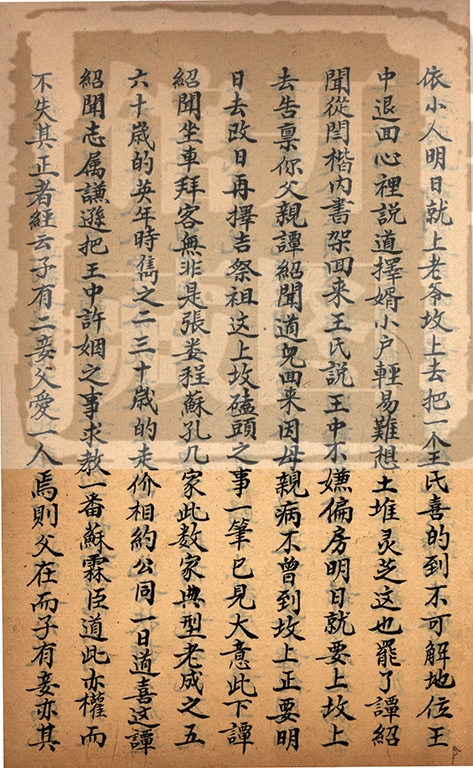 依小人明日就上老爷坟上去把一个王氏喜的到不可解地位王
中退回心裡説道擇婿小户輕易難想土堆灵芝這也罷了譚紹
聞從閆楷内書架回来王氏説王中不嫌偏房明日就要上坟上
去告禀你父親譚紹聞道児回来因母親病不曾到坟上正要明
日去改日再擇吉祭祖这上坟磕頭之事一筆已見大意此下譚
紹聞坐車拜客無非是張娄程蘇孔几家此数家典型老成之五
六十歳的英年時雋之二三十歳的走价相約公同一日道喜这譚
紹聞志属謙遜把王中許姻之事求教一番蘇霖臣道此亦權而
不失其正者經云子有二妾父愛一人焉則父在而子有妾亦其